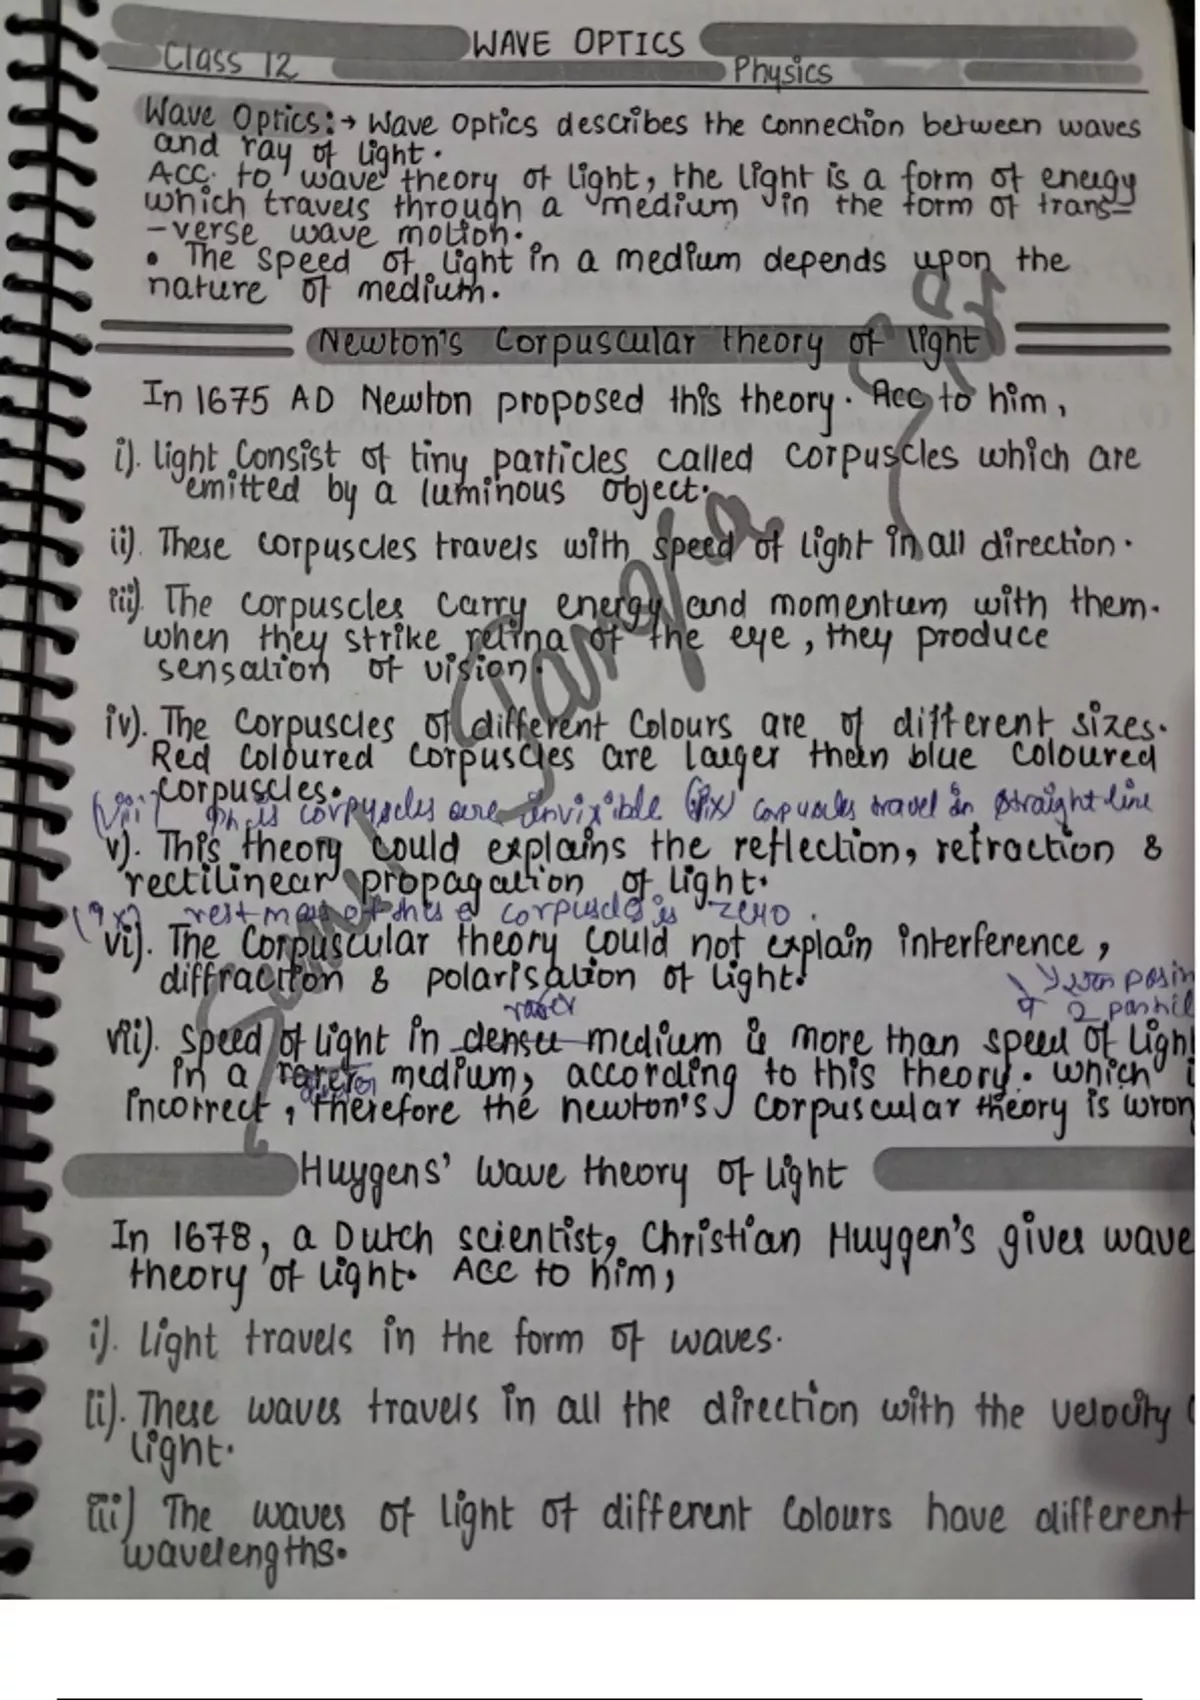 WAVE OPTICS
Class 12
Physics
Wave Optics:→ Wave optics describes the connection between waves
and ray of light.
Acc. to wave theory of light, the light is a form of energy
which travels through a medium in the form of trans-
-verse wave motion.
• The speed of light in a medium depends upon the
nature of medium.
Newton's Corpuscular theory of light
In 1675 AD Newton proposed this theory. Acc to him,
i). light consist of tiny particles called corpuscles which are
emitted by a luminous object.
ii). These corpuscles travels with speed of light in all direction.
iii). The corpuscles carry energy and momentum with them.
when they strike retina of the eye, they produce
sensation of vision.
iv). The corpuscles of different colours are of different sizes.
Red coloured corpuscles are larger than blue coloured
corpuscles.
(viii) corpuscles are invixible (ix) corpuscles travel in straight line
v). This theory could explains the reflection, refraction &
rectilinear propagation of light.
rest mass of corpuscles is zero.
vi). The Corpuscular theory could not explain interference,
diffraction & polarisation of light.
rarer
vii). speed of light in denser medium is more than speed of light
in a rarer medium, according to this theory. which i
incorrect, therefore the newton's corpuscular theory is wron
Huygens' wave theory of light
In 1678, a Dutch scientist, Christian Huygen's gives wave
theory of light. Acc to him,
i). light travels in the form of waves.
ii). These waves travels in all the direction with the velocity
light.
iii) The waves of light of different colours have different
wavelengths.